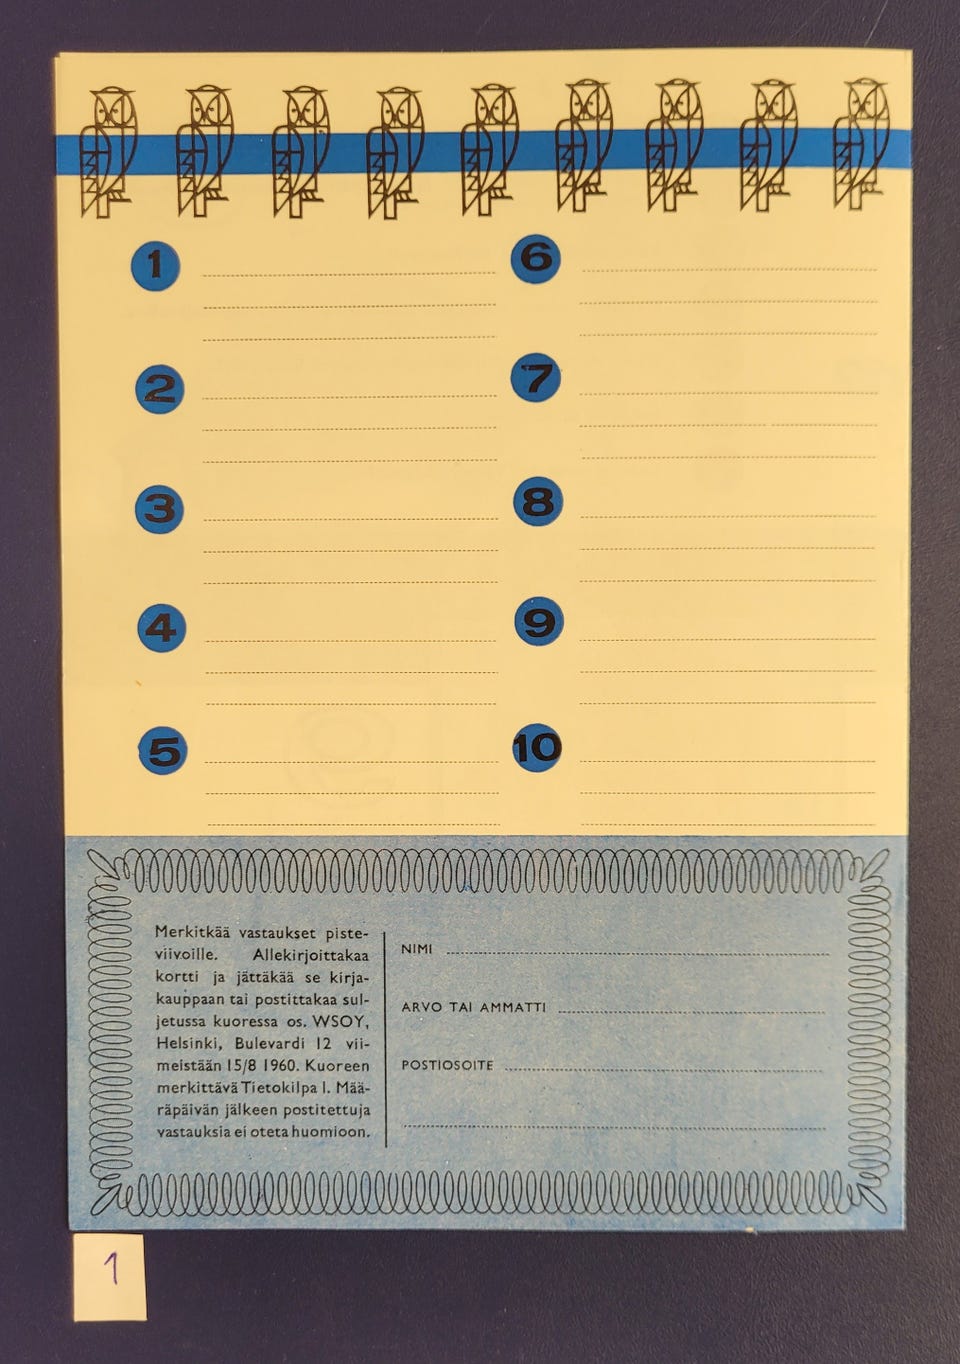 1
2
3
4
5
6
7
8
9
10
Merkitkää vastaukset piste-
viivoille. Allekirjoittakaa
kortti ja jättäkää se kirja-
kauppaan tai postittakaa sul-
jetussa kuoressa os. WSOY,
Helsinki, Bulevardi 12 vii-
meistään 15/8 1960. Kuoreen
merkittävä Tietokilpa I. Mää-
räpäivän jälkeen postitettuja
vastauksia ei oteta huomioon.
NIMI
ARVO TAI AMMATTI
POSTIOSOITE
1